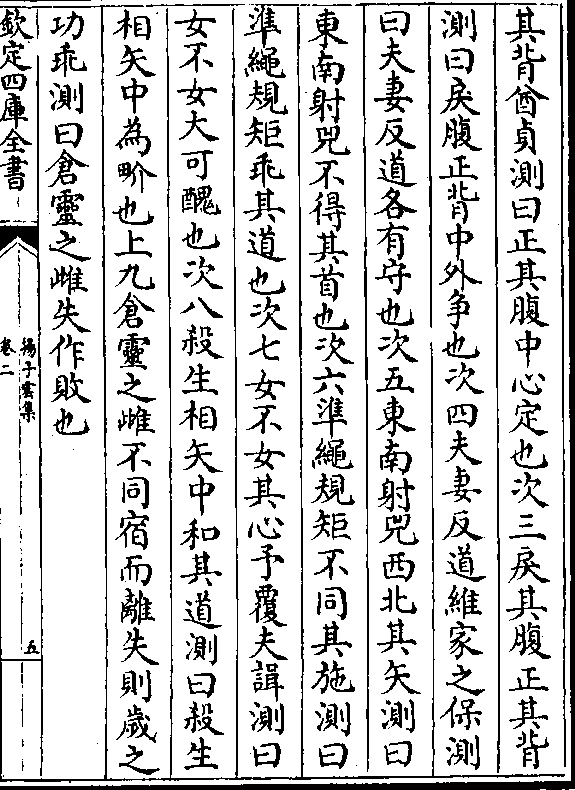 其背酋貞測曰正其腹中心定也次三戾其腹正其背
測曰戾腹正背中外争也次四夫妻反道維家之保測
曰夫妻反道各有守也次五東南射兕西北其矢測曰
東南射兕不得其首也次六準繩規矩不同其施測曰
準繩規矩乖其道也次七女不女其心予覆夫諝測曰
女不女大可醜也次八殺生相矢中和其道測曰殺生
相矢中為畍也上九倉靈之雌不同宿而離失則歲之
功乖測曰倉靈之雌失作敗也
欽定四庫全書
揚子雲集
卷二
五